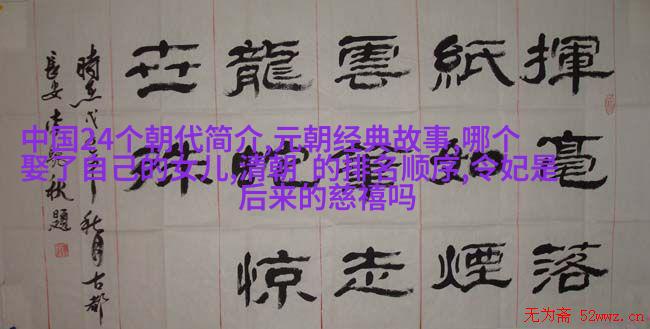 中国24个朝代简介,元朝经典故事,哪个
娶了自己的女儿,清朝 的排名顺序,令妃是
后来的慈禧吗
揮毫落
紙如煙
雲筆走
龍蛇惊
世殊
秋月古都
長安
題
无为斋 52wwz.cn